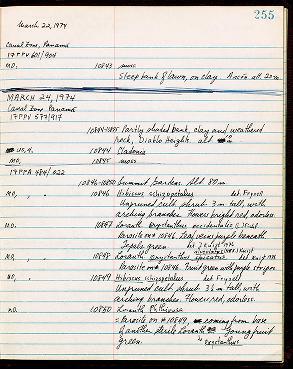 255
March 22, 1974
Canal Zone, Panamá
17PPV 601/904
MO, 10843 moss
Steep bank of lawn, on clay. Ancón alt. 20 m
MARCH 24, 1974
Canal Zone, Panamá
17PPV 577/917
10844-10845 Partly shaded bank, clay and weathered
rock, Diablo Heights. alt
US, MO, 10844 Cladonia
MO, 10845 moss
17PPA 484/022
10846-10850 Summit Gardens. Alt 80 m
MO, 10846 Hibiscus schizopetalus det. Fryxell
Unpruned cult. shrub 3 m tall, with
arching branches. Flowers bright red, odorless.
MO, 10847 Loranth. Oryctanthus occidentalis
Parasite on # 10846. Leaf veins purple beneath
Tepals green
MO, 10848 Loranth. Oryctanthus det. Kuijt
Parasite on # 10846. Fruit green with purple
MO, 10849 Hibiscus schizopetalus det. Fryxell
Unpruned cult. shrub 3½ m tall with
arching branches. Flowers red, odorless.
MO 10850 Loranth. Phthirusa
Parasite on # 10849, coming from base
of another sterile Loranth Young fruit
green. Oryctanthus